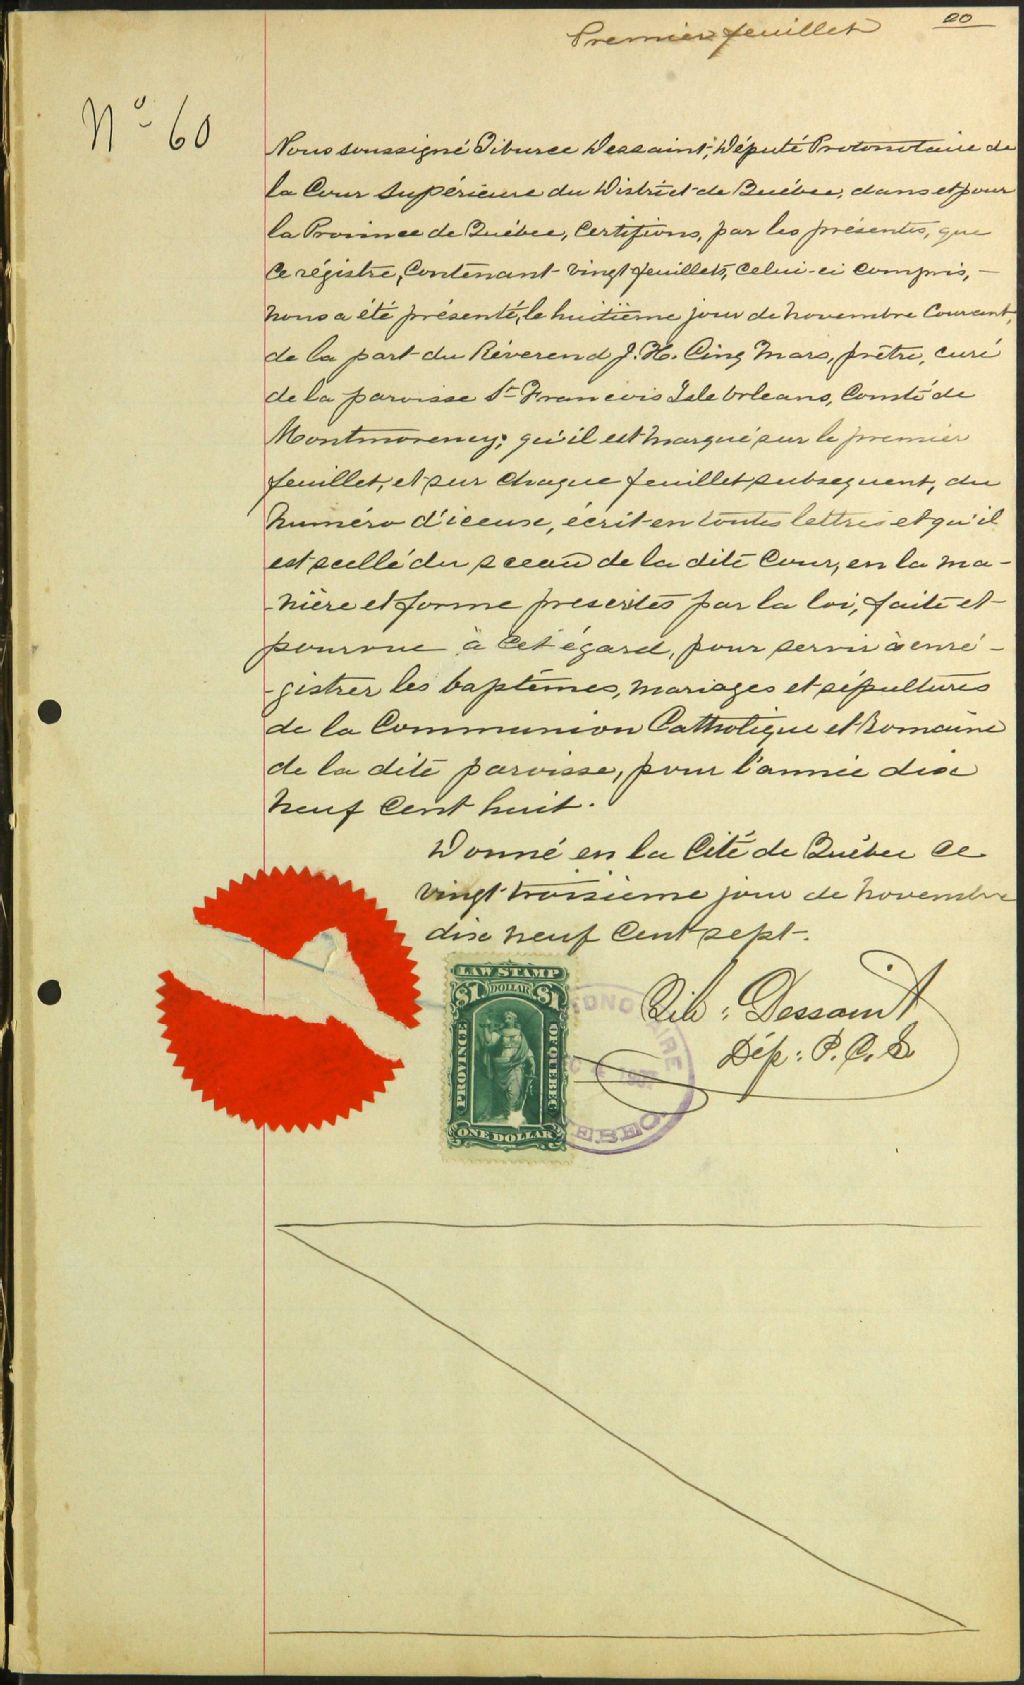 20
Premier feuillet
No 60
Nous soussigné Tiburce Dessaint, Député Protonotaire de
la Cour Supérieure du District de Québec, dans et pour
la Province de Québec, Certifions, par les présentes, que
ce régistre, Contenant vingt feuillets, celui-ci compris, -
nous a été présenté, le huitième jour de novembre Courant,
de la part du Réverend J. H. Cinq Mars, prêtre, curé
de la paroisse St Francois Isle Orleans, Comté de
Montmorency; qu'il est marqué sur le premier
feuillet, et sur chaque feuillet subsequent, du
numéro d'iceux, écrit en toutes lettres et qu'il
est scellé du sceau de la dite Cour, en la ma-
-nière et forme prescrites par la loi, faite et
pourvue à cet égard, pour servir à enré-
-gistrer les baptêmes, mariages et sépultures
de la Communion Catholique et Romaine
de la dite paroisse, pour l'année dix
neuf cent huit.
Donné en la Cité de Québec ce
vingt troisième jour de novembre
dix neuf Cent sept.
Tib: Dessaint
Dép: P. C. S.
LAW STAMP
$1 DOLLAR $1
PROVINCE
OF QUEBEC
ONE DOLLAR